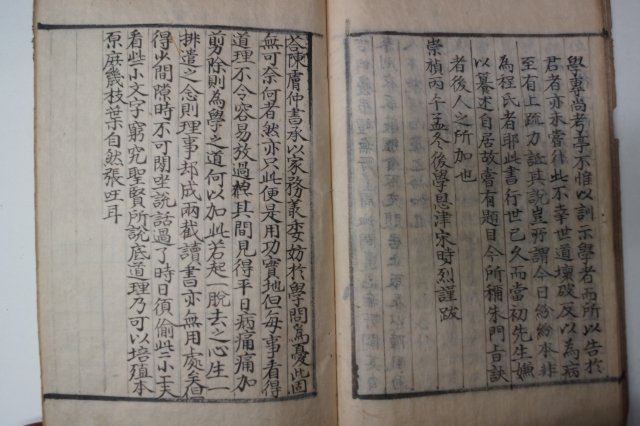 學專尚考亭不惟以訓示學者而所以告於
君者亦未嘗非此不幸世道壞破反以爲病
至有上疏力詆其說豈所謂今日紛紛本非
爲程氏者耶此書行世已久而當初先生嫌
以纂述自居故嘗有題目今所稱朱門旨訣
者後人之所加也
崇禎丙午孟冬後學恩津宋時烈謹跋
答陳膚仲書承以家務叢委妨於學問爲憂此固
無可奈何者然亦只此便是用功實地但每事看得
道理不令容易放過更其間見得平日病痛痛加
剪除則爲學之道何以加此若起一脫去之心生一
排遣之念則理事却成兩截讀書亦無用處矣但
得少間隙時不可閑坐說話過了時日須偷些小工夫
看些小文字窮究聖賢所說底道理乃可以培殖本
原庶幾枝葉自然張旺耳